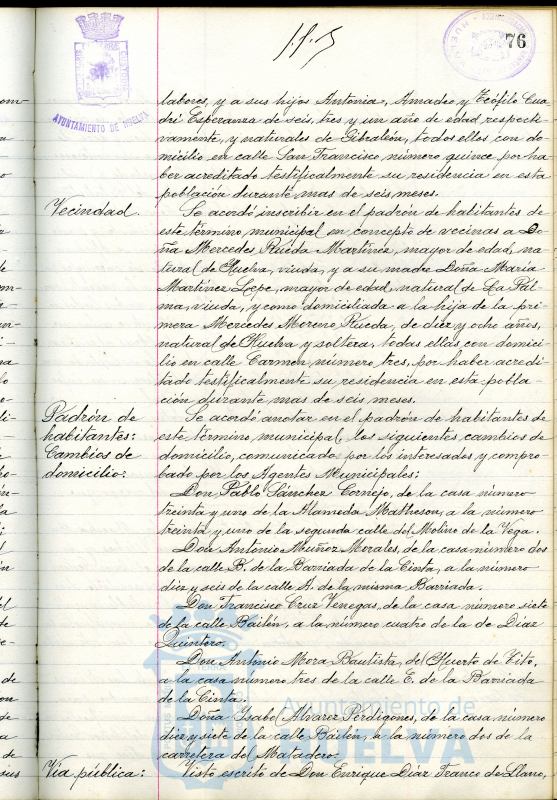 76
AYUNTAMIENTO DE HUELVA
labores, y a sus hijos Antonia, Amadeo y Teófilo Cua-
dri Esperanza de seis, tres y un año de edad respecti-
vamente, y naturales de Gibraleón, todos ellos con do-
micilio en calle San Francisco número quince por ha-
ber acreditado testificalmente su residencia en esta
población durante mas de seis meses.
Vecindad.
Se acordó inscribir en el padrón de habitantes de
este término municipal en concepto de vecinas a Do-
ña Mercedes Rueda Martínez, mayor de edad, na-
tural de Huelva, viuda, y a su madre Doña María
Martínez Lepe, mayor de edad, natural de La Pal-
ma, viuda, y como domiciliada a la hija de la pri-
mera Mercedes Moreno Rueda, de diez y ocho años,
natural de Huelva y soltera, todas ellas con domici-
lio en calle Carmen, número tres, por haber acredi-
tado testificalmente su residencia en esta pobla-
ción durante mas de seis meses.
Padrón de
habitantes:
Cambios de
domicilio:
Se acordó anotar en el padrón de habitantes de
este término municipal, los siguientes cambios de
domicilio, comunicado por los interesados y compro-
bado por los Agentes Municipales:
Don Pablo Sánchez Cornejo, de la casa número
treinta y uno de la Alameda Matheson, a la número
treinta y uno de la segunda calle del Molino de la Vega.
Don Antonio Muñoz Morales, de la casa número dos
de la calle B. de la Barriada de la Cinta, a la número
diez y seis de la calle A. de la misma Barriada.
Don Francisco Cruz Venegas, de la casa número siete
de la calle Bailén, a la número cuatro de la de Díaz
Quintero.
Don Antonio Mora Bautista, del Huerto de Tito,
a la casa número tres de la calle E. de la Barriada
de la Cinta.
Doña Isabel Alvarez Perdigones, de la casa número
diez y siete de la calle Bailén, a la número dos de la
carretera del Matadero.
Vía pública:
Visto escrito de Don Enrique Díaz Franco de Llano,
Ayuntamiento de
HUELVA